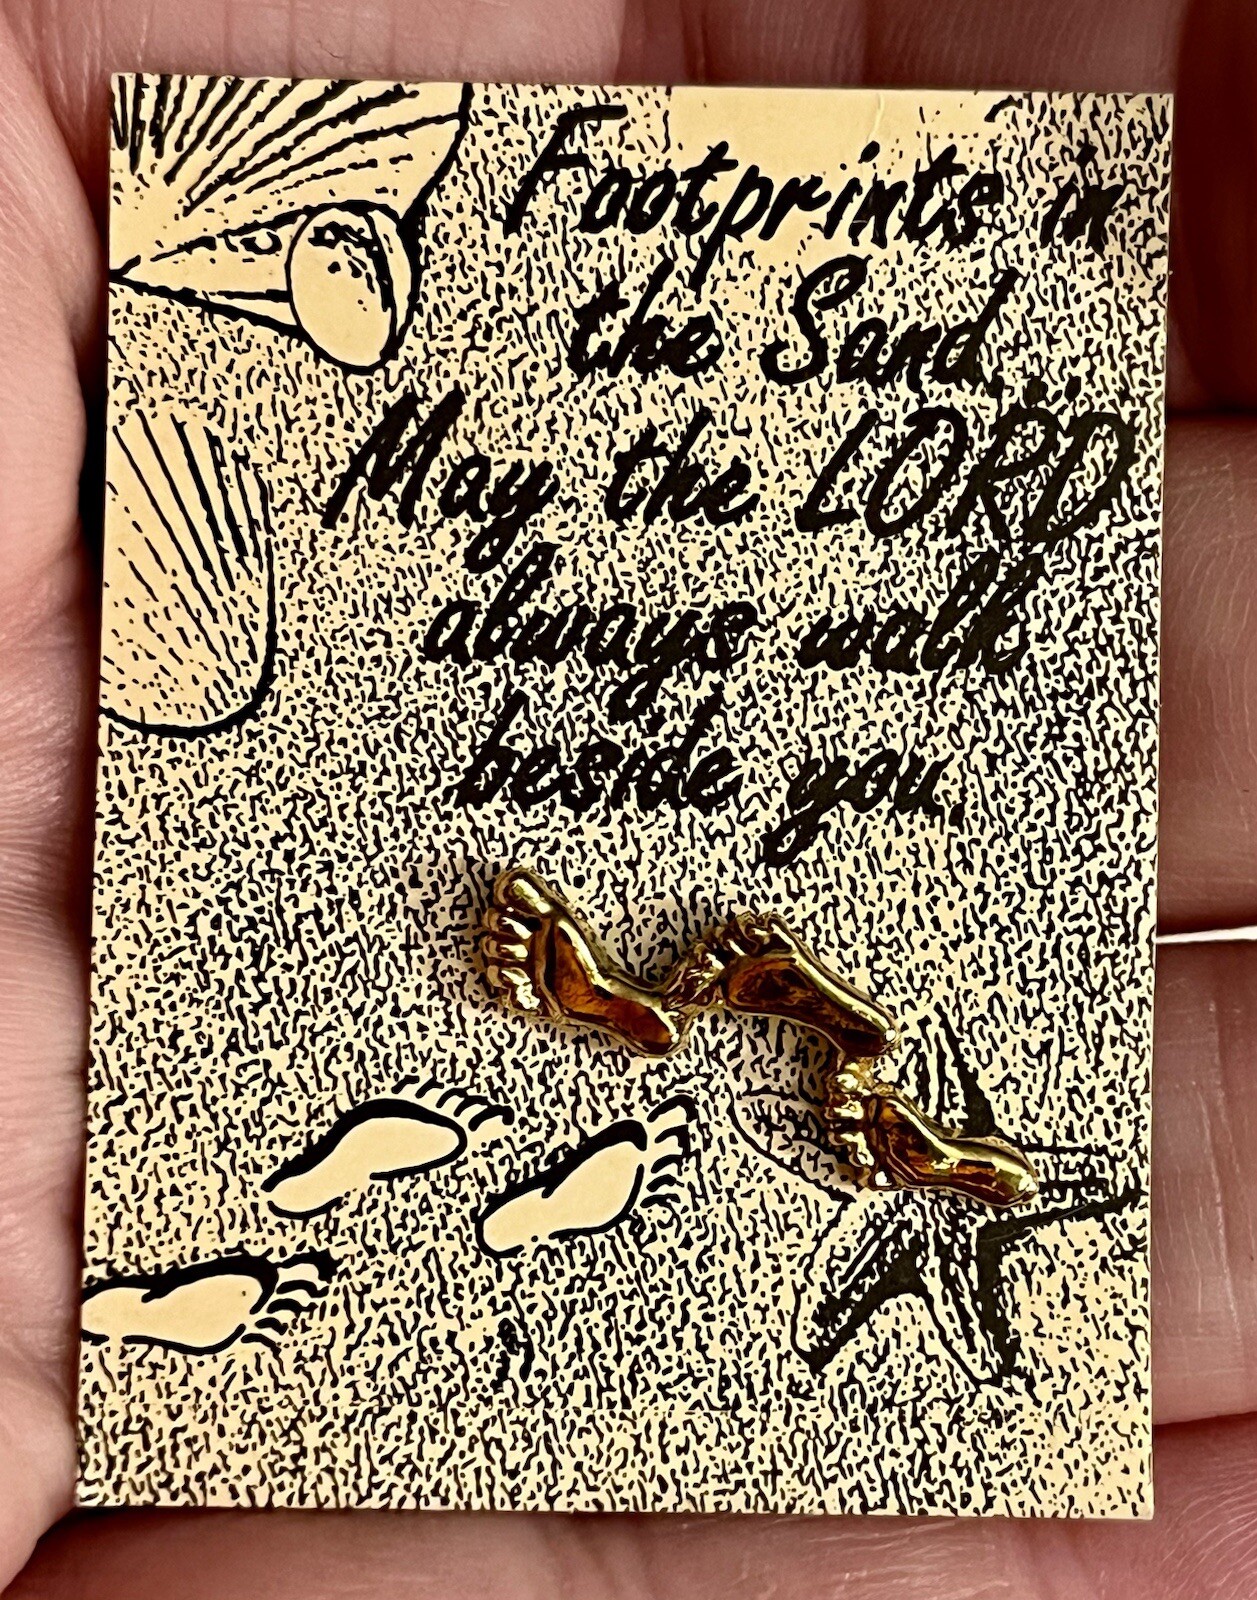 Footprints in
the Sand...
May the LORD
always walk
beside you.